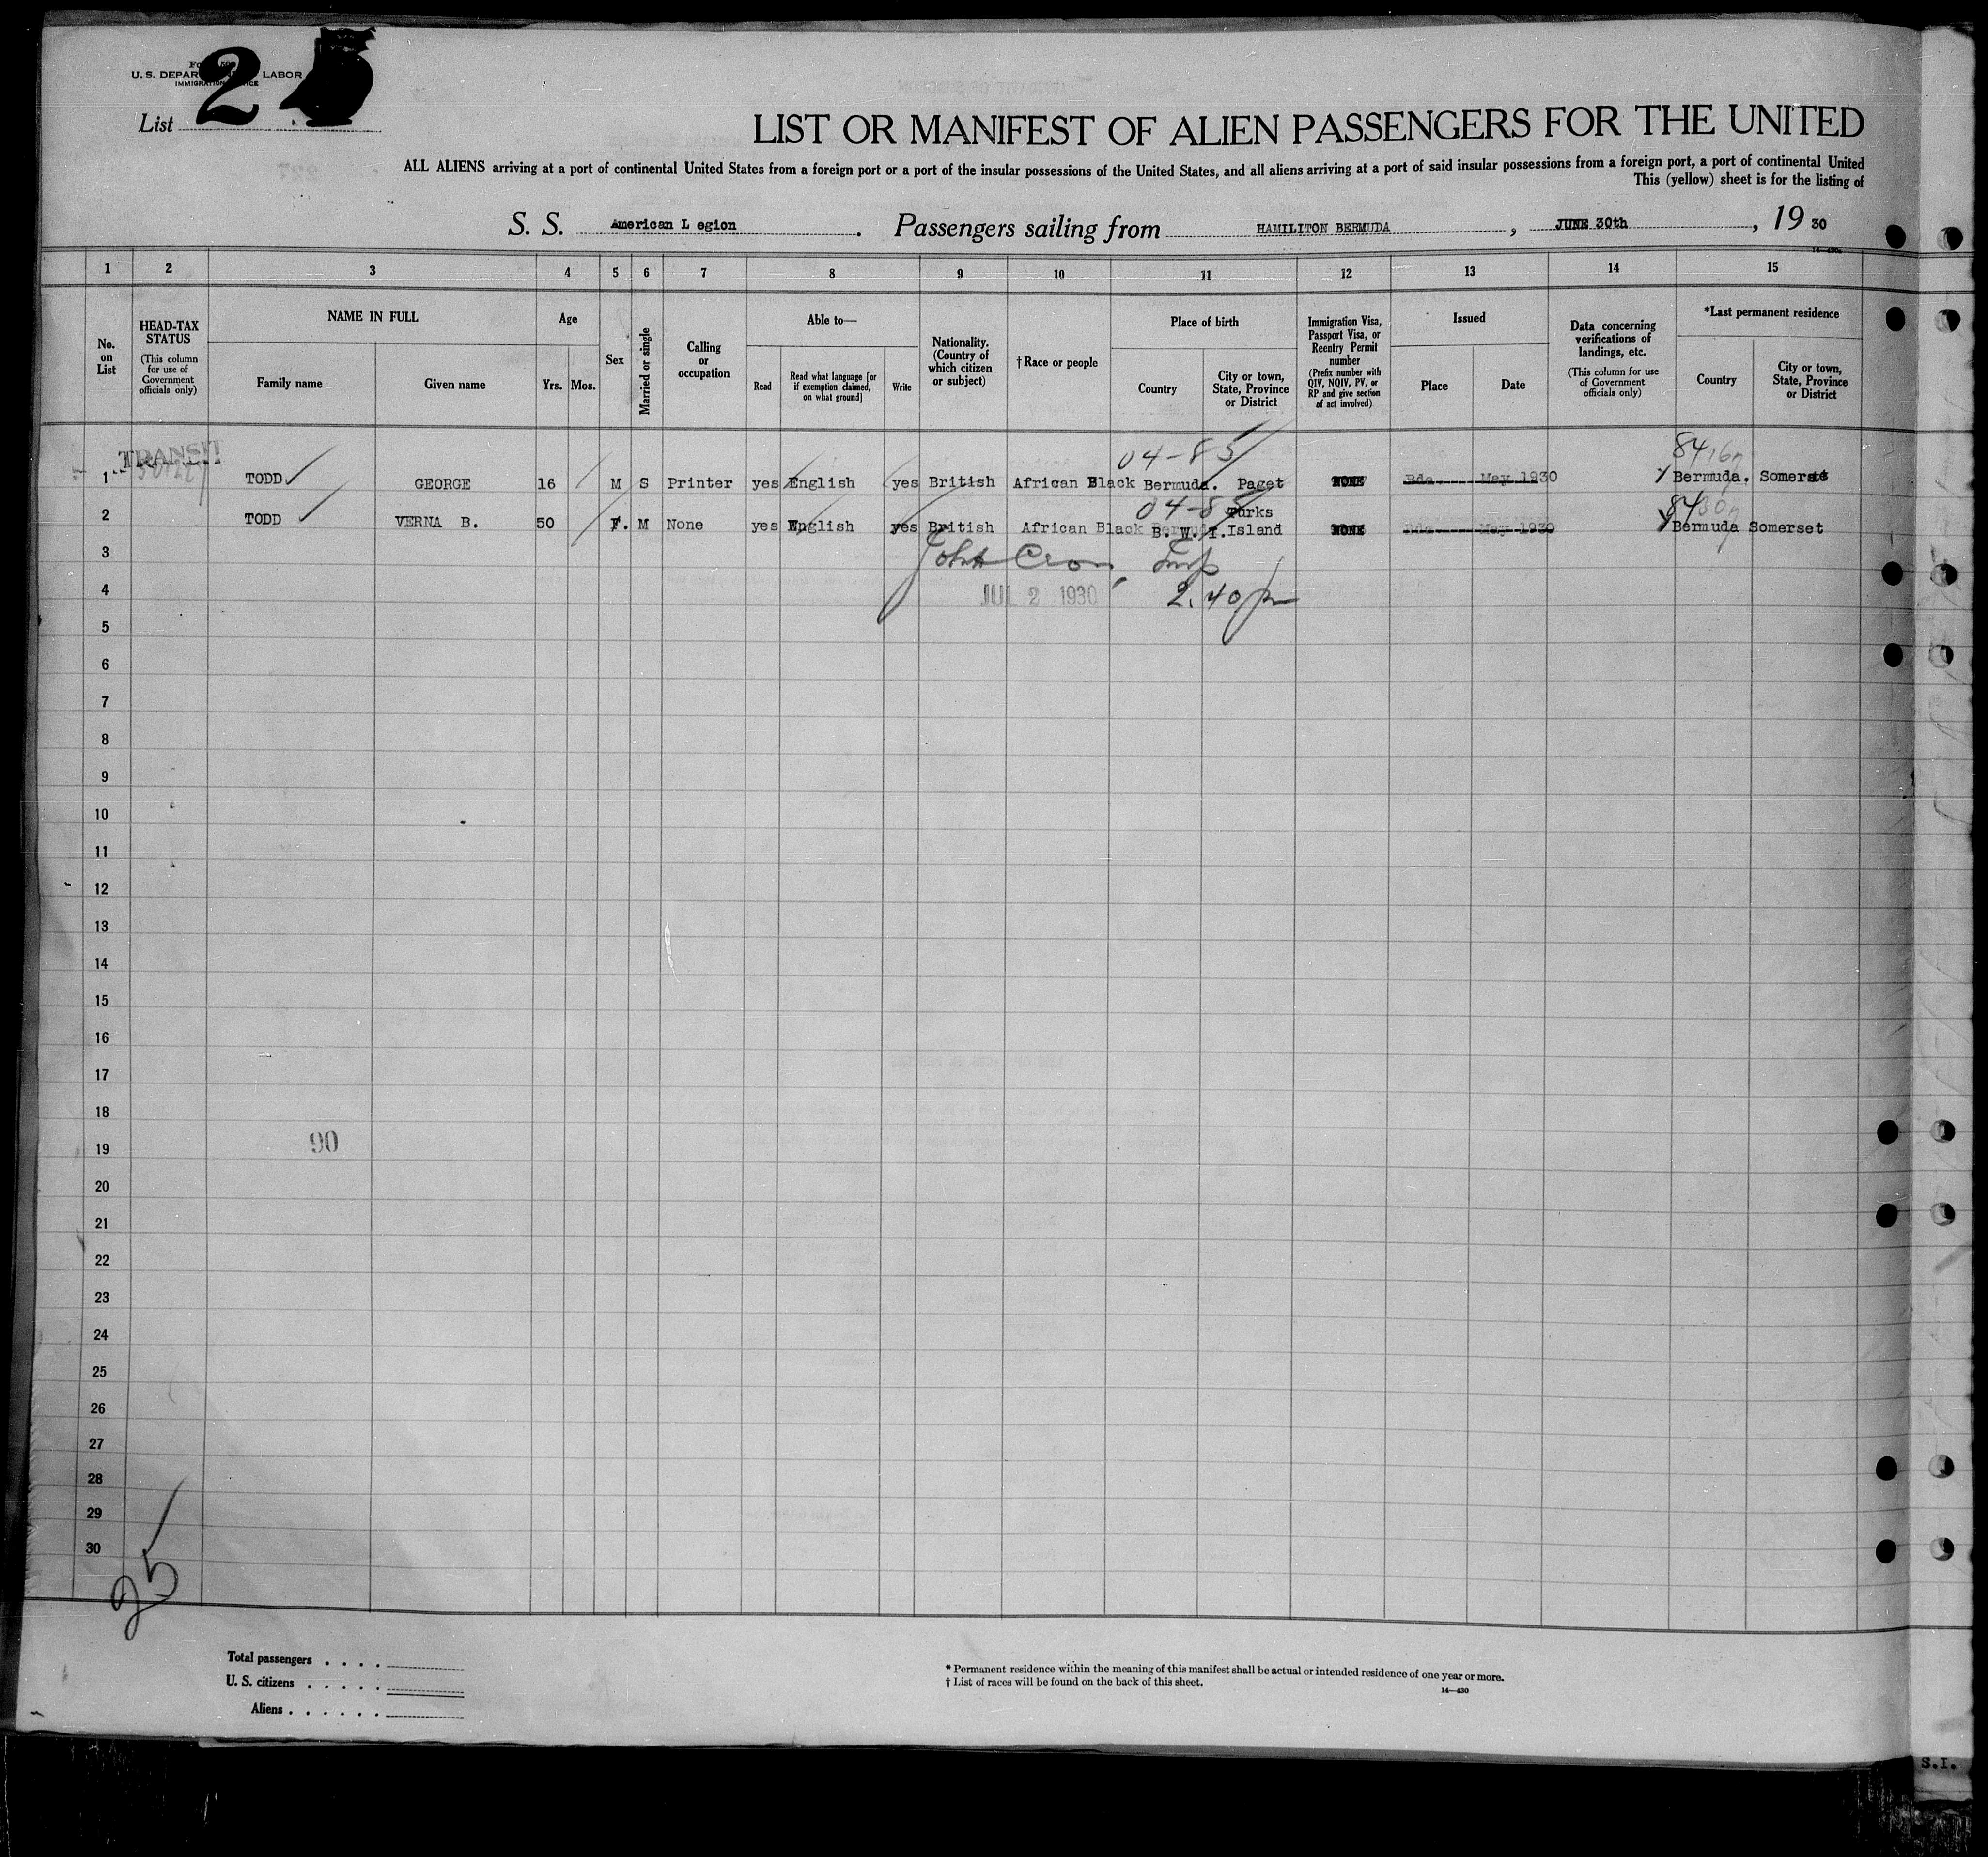 U. S. DEPAR LABOR
IMMIGRATION
List 2
LIST OR MANIFEST OF ALIEN PASSENGERS FOR THE UNITED
ALL ALIENS arriving at a port of continental United States from a foreign port or a port of the insular possessions of the United States, and all aliens arriving at a port of said insular possessions from a foreign port, a port of continental United
This (yellow) sheet is for the listing of
S. S. American L egion . Passengers sailing from HAMILITON BERMUDA , JUNE 30th , 19 30
1 2 3 4 5 6 7 8 9 10 11 12 13 14 15
No. on List
HEAD-TAX STATUS
(This column for use of Government officials only)
NAME IN FULL
Family name
Given name
Age
Yrs. Mos.
Sex
Married or single
Calling or occupation
Able to—
Read
Read what language [or if exemption claimed, on what ground]
Write
Nationality. (Country of which citizen or subject)
† Race or people
Place of birth
Country
City or town, State, Province or District
Immigration Visa, Passport Visa, or Reentry Permit number
(Prefix number with QIV, NQIV, PV, or RP and give section of act involved)
Issued
Place
Date
Data concerning verifications of landings, etc.
(This column for use of Government officials only)
*Last permanent residence
Country
City or town, State, Province or District
TRANSIT
04-85
84
1 TODD GEORGE 16 M S Printer yes English yes British African Black Bermuda. Paget NONE Bda. May 1930 Bermuda. Somerset
04-85
84
2 TODD VERNA B. 50 F. M None yes English yes British African Black B. W. I. Turks Island NONE Bda. May 1930 Bermuda Somerset
3 John
4 JUL 2 1930 2.40 pm
5
6
7
8
9
10
11
12
13
14
15
16
17
18
19 90
20
21
22
23
24
25
26
27
28
29
30
25
Total passengers . . . .
U. S. citizens . . . . .
Aliens . . . . . .
* Permanent residence within the meaning of this manifest shall be actual or intended residence of one year or more.
† List of races will be found on the back of this sheet.
14—430
S.I.